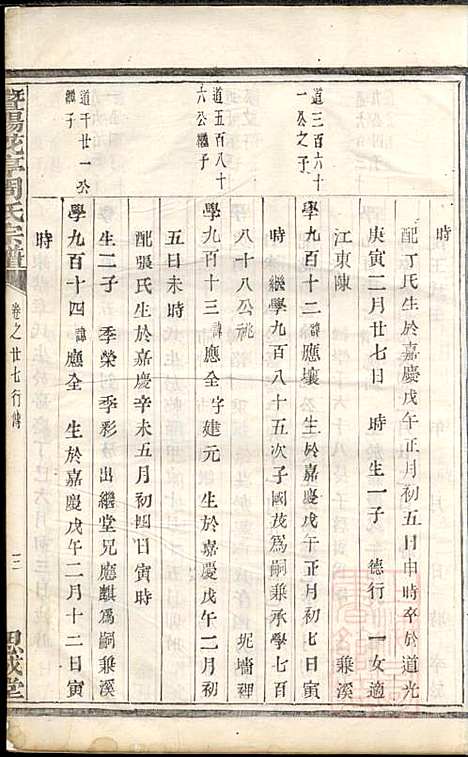 時
配丁氏生於嘉慶戊午正月初五日申時卒於道光
庚寅二月廿七日　時生一子　德行　一女適
江東陳　　　　　　　　　　　　　　乗溪
道三百六十
一公之子
學九百十二諱應壤　生於嘉慶戊午正月初七日寅
時　繼學九百八十五次子國茂爲嗣乗承學七百
八十八公祧　　　　　　　　　　坭墻裡
道五百八十
六公繼子
學九百十三諱應全字建元　生於嘉慶戊午二月初
五日未時
配張氏生於嘉慶辛未五月初四日寅時
生二子　季榮　季彩　出繼堂兄應麒爲嗣乗溪
道千廿一公
繼子
學九百十四諱應全　生於嘉慶戊午二月十二日寅
時
暨陽花亭周氏宗譜
卷之廿七行傳
三
思成堂